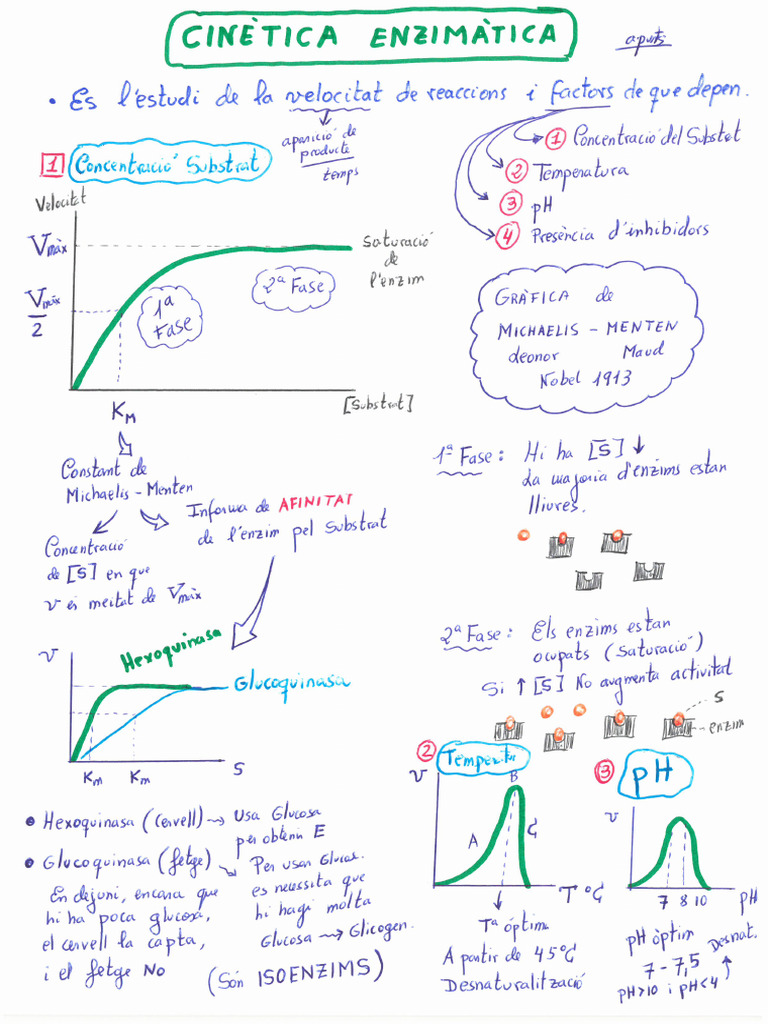 CINÈTICA ENZIMÀTICA
apunts
• Es l'estudi de la velocitat de reaccions i factors de que depen.
aparició de
producte
temps
① Concentració del Substrat
② Temperatura
③ pH
④ Presència d'inhibidors
1 Concentració Substrat
Velocitat
Vmàx
Vmàx
2
1ª
Fase
2ª Fase
Saturació
de
l'enzim
KM
[Substrat]
GRÀFICA de
MICHAELIS - MENTEN
deonor Maud
Nobel 1913
Constant de
Michaelis - Menten
Concentració
de [S] en que
v és meitat de Vmàx
Informa de AFINITAT
de l'enzim pel Substrat
1ª Fase: Hi ha [S] ↓
La majoria d'enzims estan
lliures.
2ª Fase: Els enzims estan
ocupats (Saturació)
Si ↑ [S] No augmenta activitat
S
enzim
V
Hexoquinasa
Glucoquinasa
Km Km S
• Hexoquinasa (cervell) → Usa Glucosa
per obtenir E
• Glucoquinasa (fetge) Per usar Glucos.
es necessita que
hi hagi molta
Glucosa → Glicogen.
En dejuni, encara que
hi ha poca glucosa,
el cervell la capta,
i el fetge NO
(Són ISOENZIMS)
②
V
B
A
C
T ºC
Tª òptim
A partir de 45ºC
Desnaturalització
③ pH
v
7 8 10 pH
pH òptim
7 - 7,5
Desnat.
pH>10 i pH<4